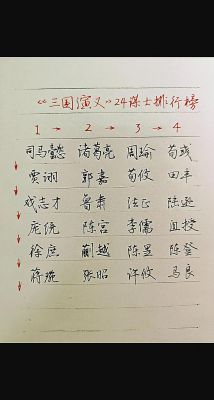 《三国演义》24谋士排行榜
1 → 2 → 3 → 4
司马懿 诸葛亮 周瑜 荀彧
贾诩 郭嘉 荀攸 田丰
戏志才 鲁肃 法正 陆逊
庞统 陈宫 李儒 沮授
徐庶 蒯越 陈昱 陈登
蒋琬 张昭 许攸 马良